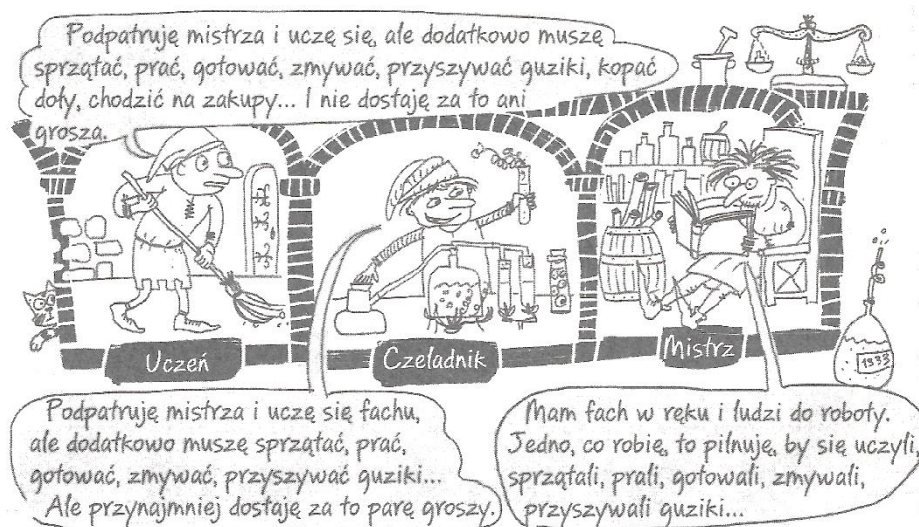 Podpatruję mistrza i uczę się, ale dodatkowo muszę
sprzątać, prać, gotować, zmywać, przyszywać guziki, kopać
doły, chodzić na zakupy... I nie dostaję za to ani
grosza.
Uczeń
Czeladnik
Mistrz
1333
Podpatruję mistrza i uczę się fachu,
ale dodatkowo muszę sprzątać, prać,
gotować, zmywać, przyszywać guziki...
Ale przynajmniej dostaję za to parę groszy.
Mam fach w ręku i ludzi do roboty.
Jedno, co robię, to pilnuję, by się uczyli,
sprzątali, prali, gotowali, zmywali,
przyszywali guziki...